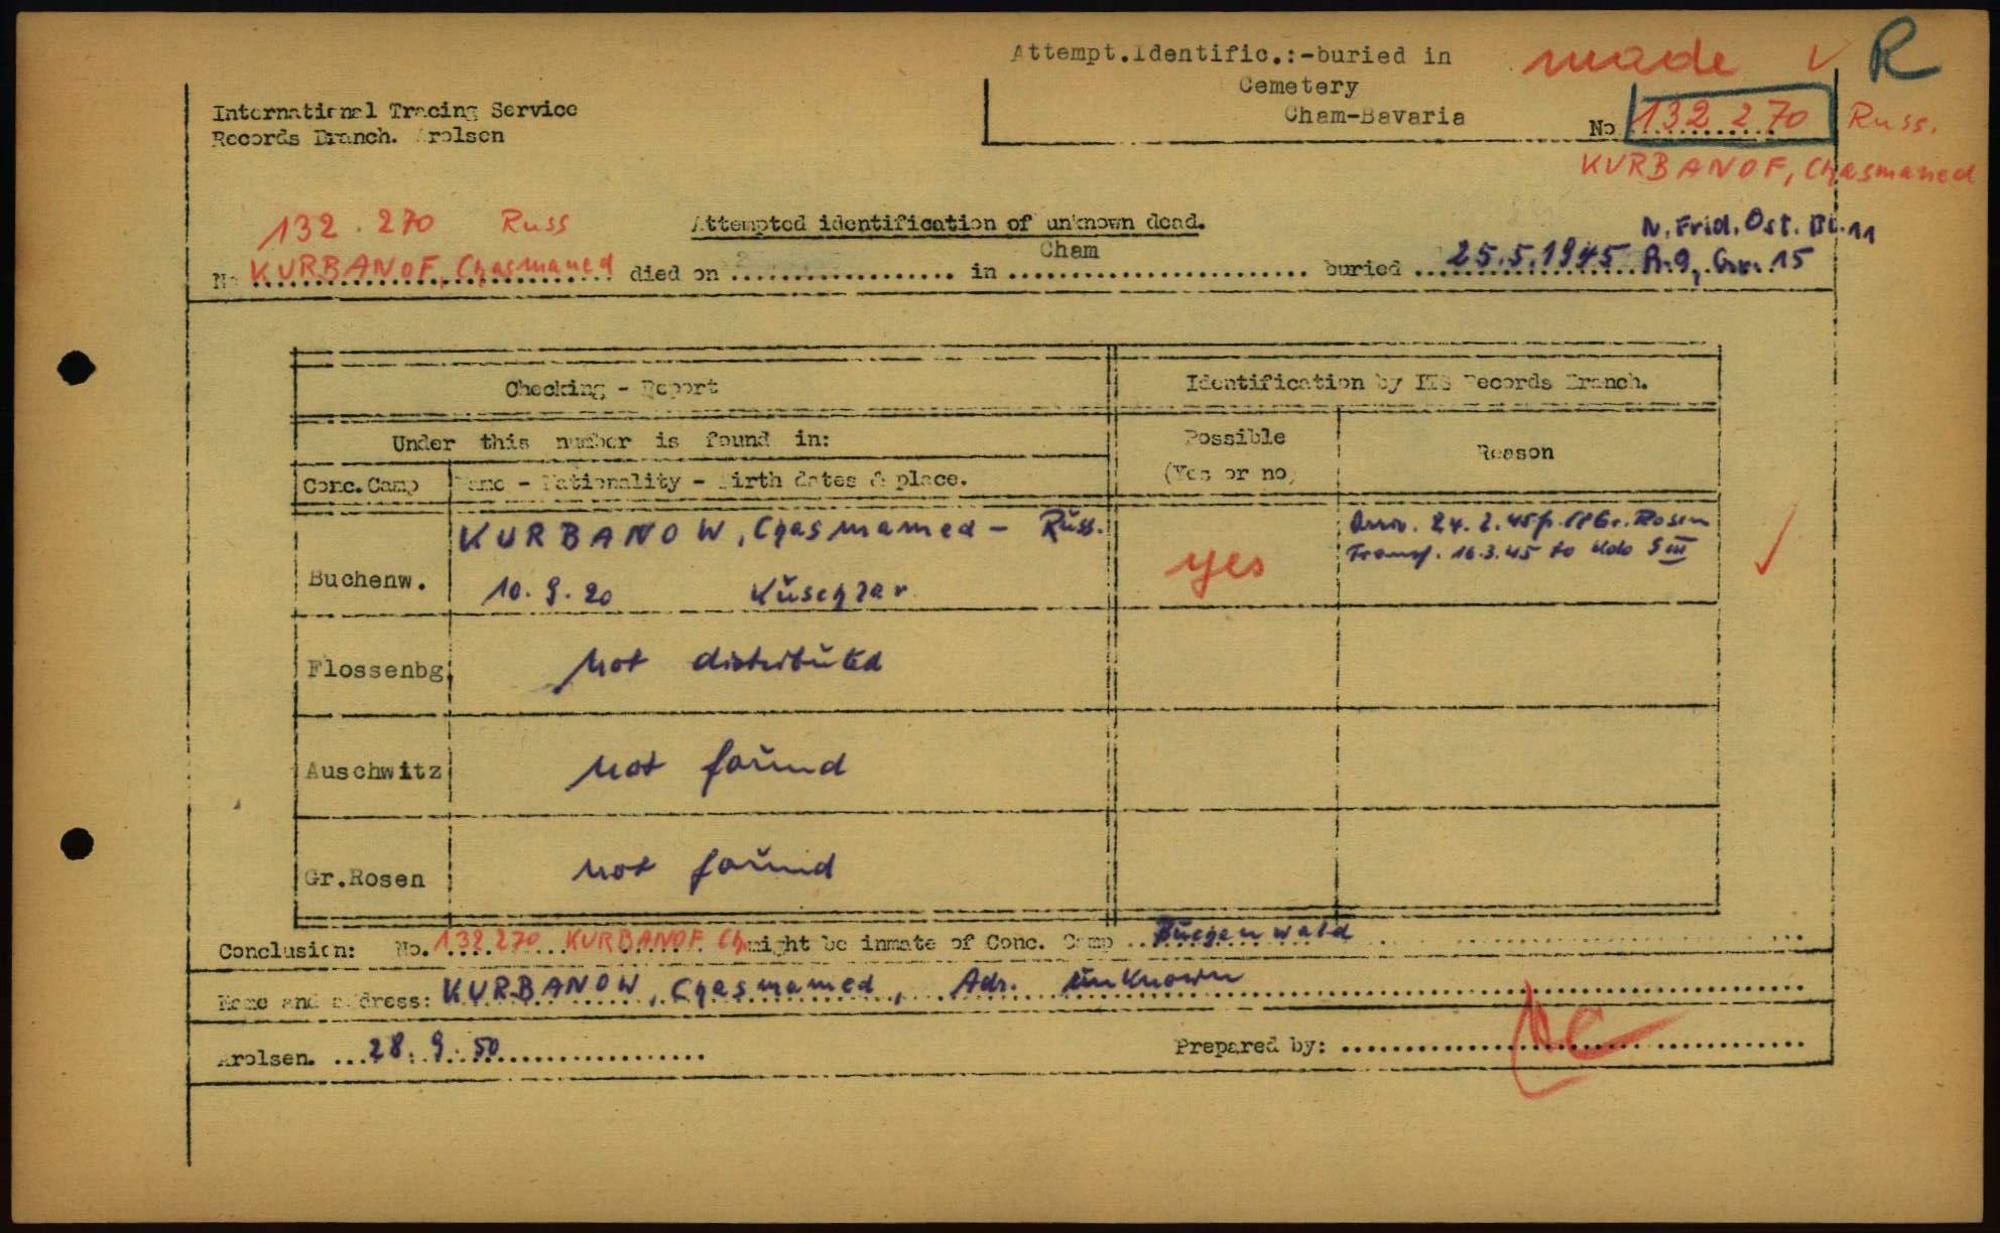 Attempt.Identific.:-buried in made V R
Cemetery
Cham-Bavaria
No 132 270 Russ.
KURBANOF, Chasmaned
International Tracing Service
Records Branch. Arolsen
132.270 Russ
Attempted identification of unknown dead.
N. Frid. Ost. Bl. 11
No KURBANOF, Chasmaned died on .......... in Cham buried 25.5.1945 R.9, Gr. 15
Checking - Report
Identification by ITS Records Branch.
Under this number is found in:
Possible
(Yes or no)
Reason
Conc.Camp
Name - Nationality - Birth dates & place.
Buchenw.
KURBANOW, Chasmamed - Russ.
10.9.20 Kuschzar
yes
Arriv. 24.2.45 f. Gr. Rosen
Transf. 16.3.45 to Kdo S III
Flossenbg.
not distributed
Auschwitz
not found
Gr.Rosen
not found
Conclusion: No. 132 270 KURBANOF Ch might be inmate of Conc. Camp Buchenwald
Name and address: KURBANOW, Chasmamed, Adr. unknown
Arolsen. 28.9.50
Prepared by: